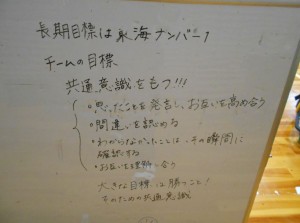 長期目標は東海ナンバー1
チームの目標
共通意識をもつ!!!
・思ったことを発言し、お互いを高め合う
・間違いを認める
・わからなかったことは、その瞬間に
確認する
・お互いを理解し合う
大きな目標は勝つこと!
そのための共通意識